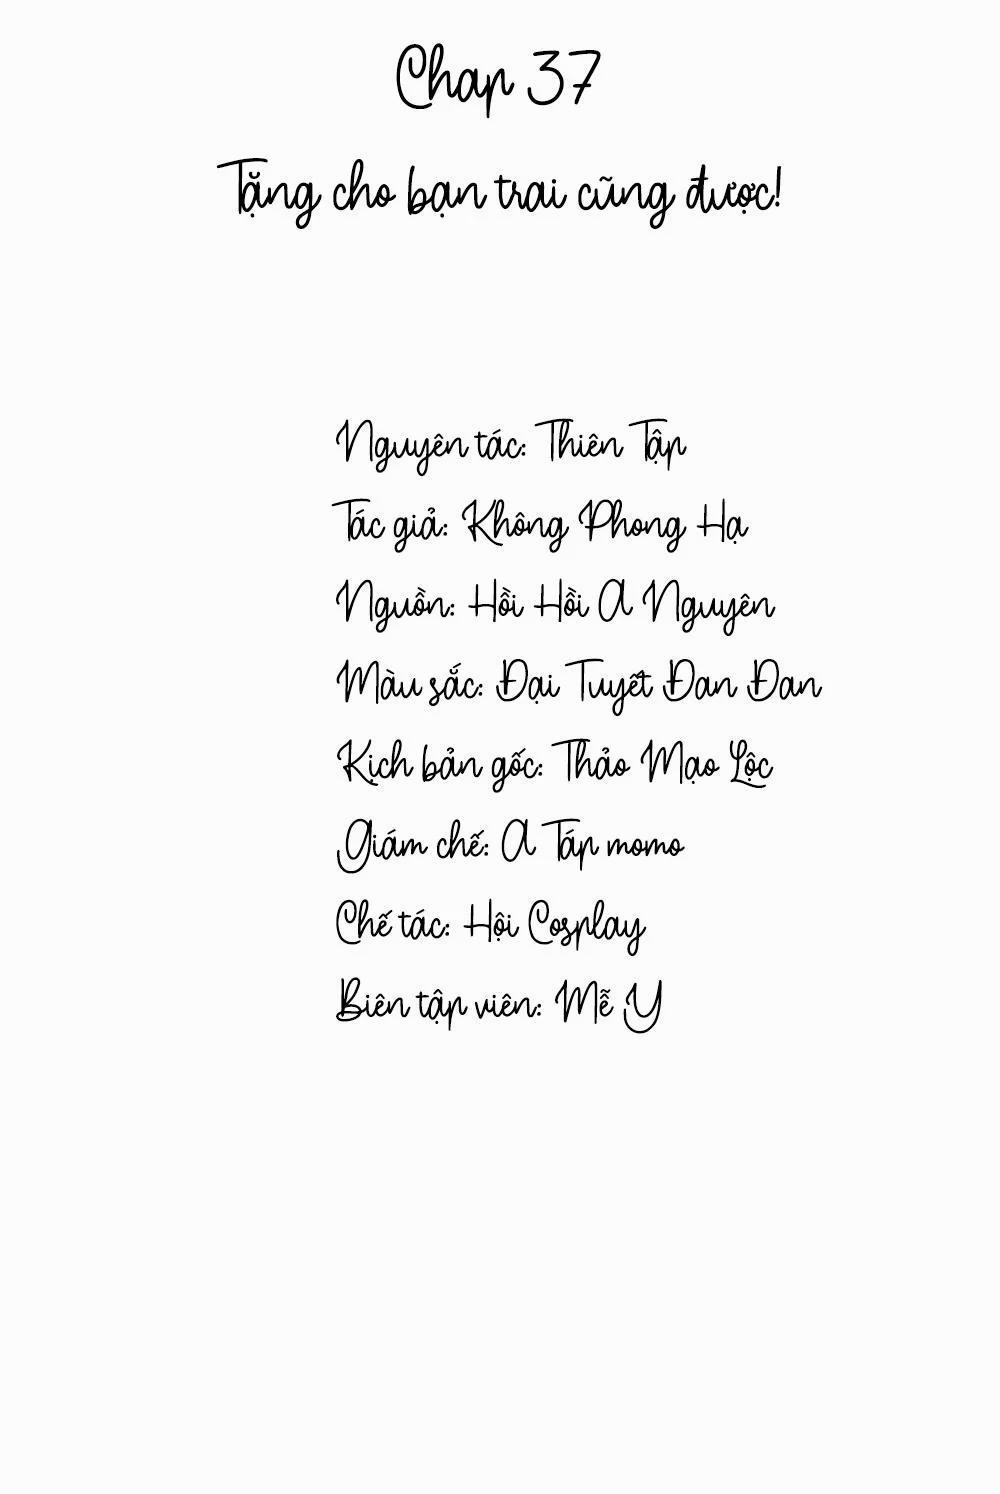 Chap 37
Tặng cho bạn trai cũng được!
Nguyên tác: Thiên Tập
Tác giả: Không Phong Hạ
Nguồn: Hồi Hồi A Nguyên
Màu sắc: Đại Tuyết Đan Đan
Kịch bản gốc: Thảo Mạo Lộc
Giám chế: A Táp momo
Chế tác: Hội Cosplay
Biên tập viên: Mễ Y